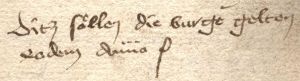 Ditz söllen die burge gelten
eodem anno